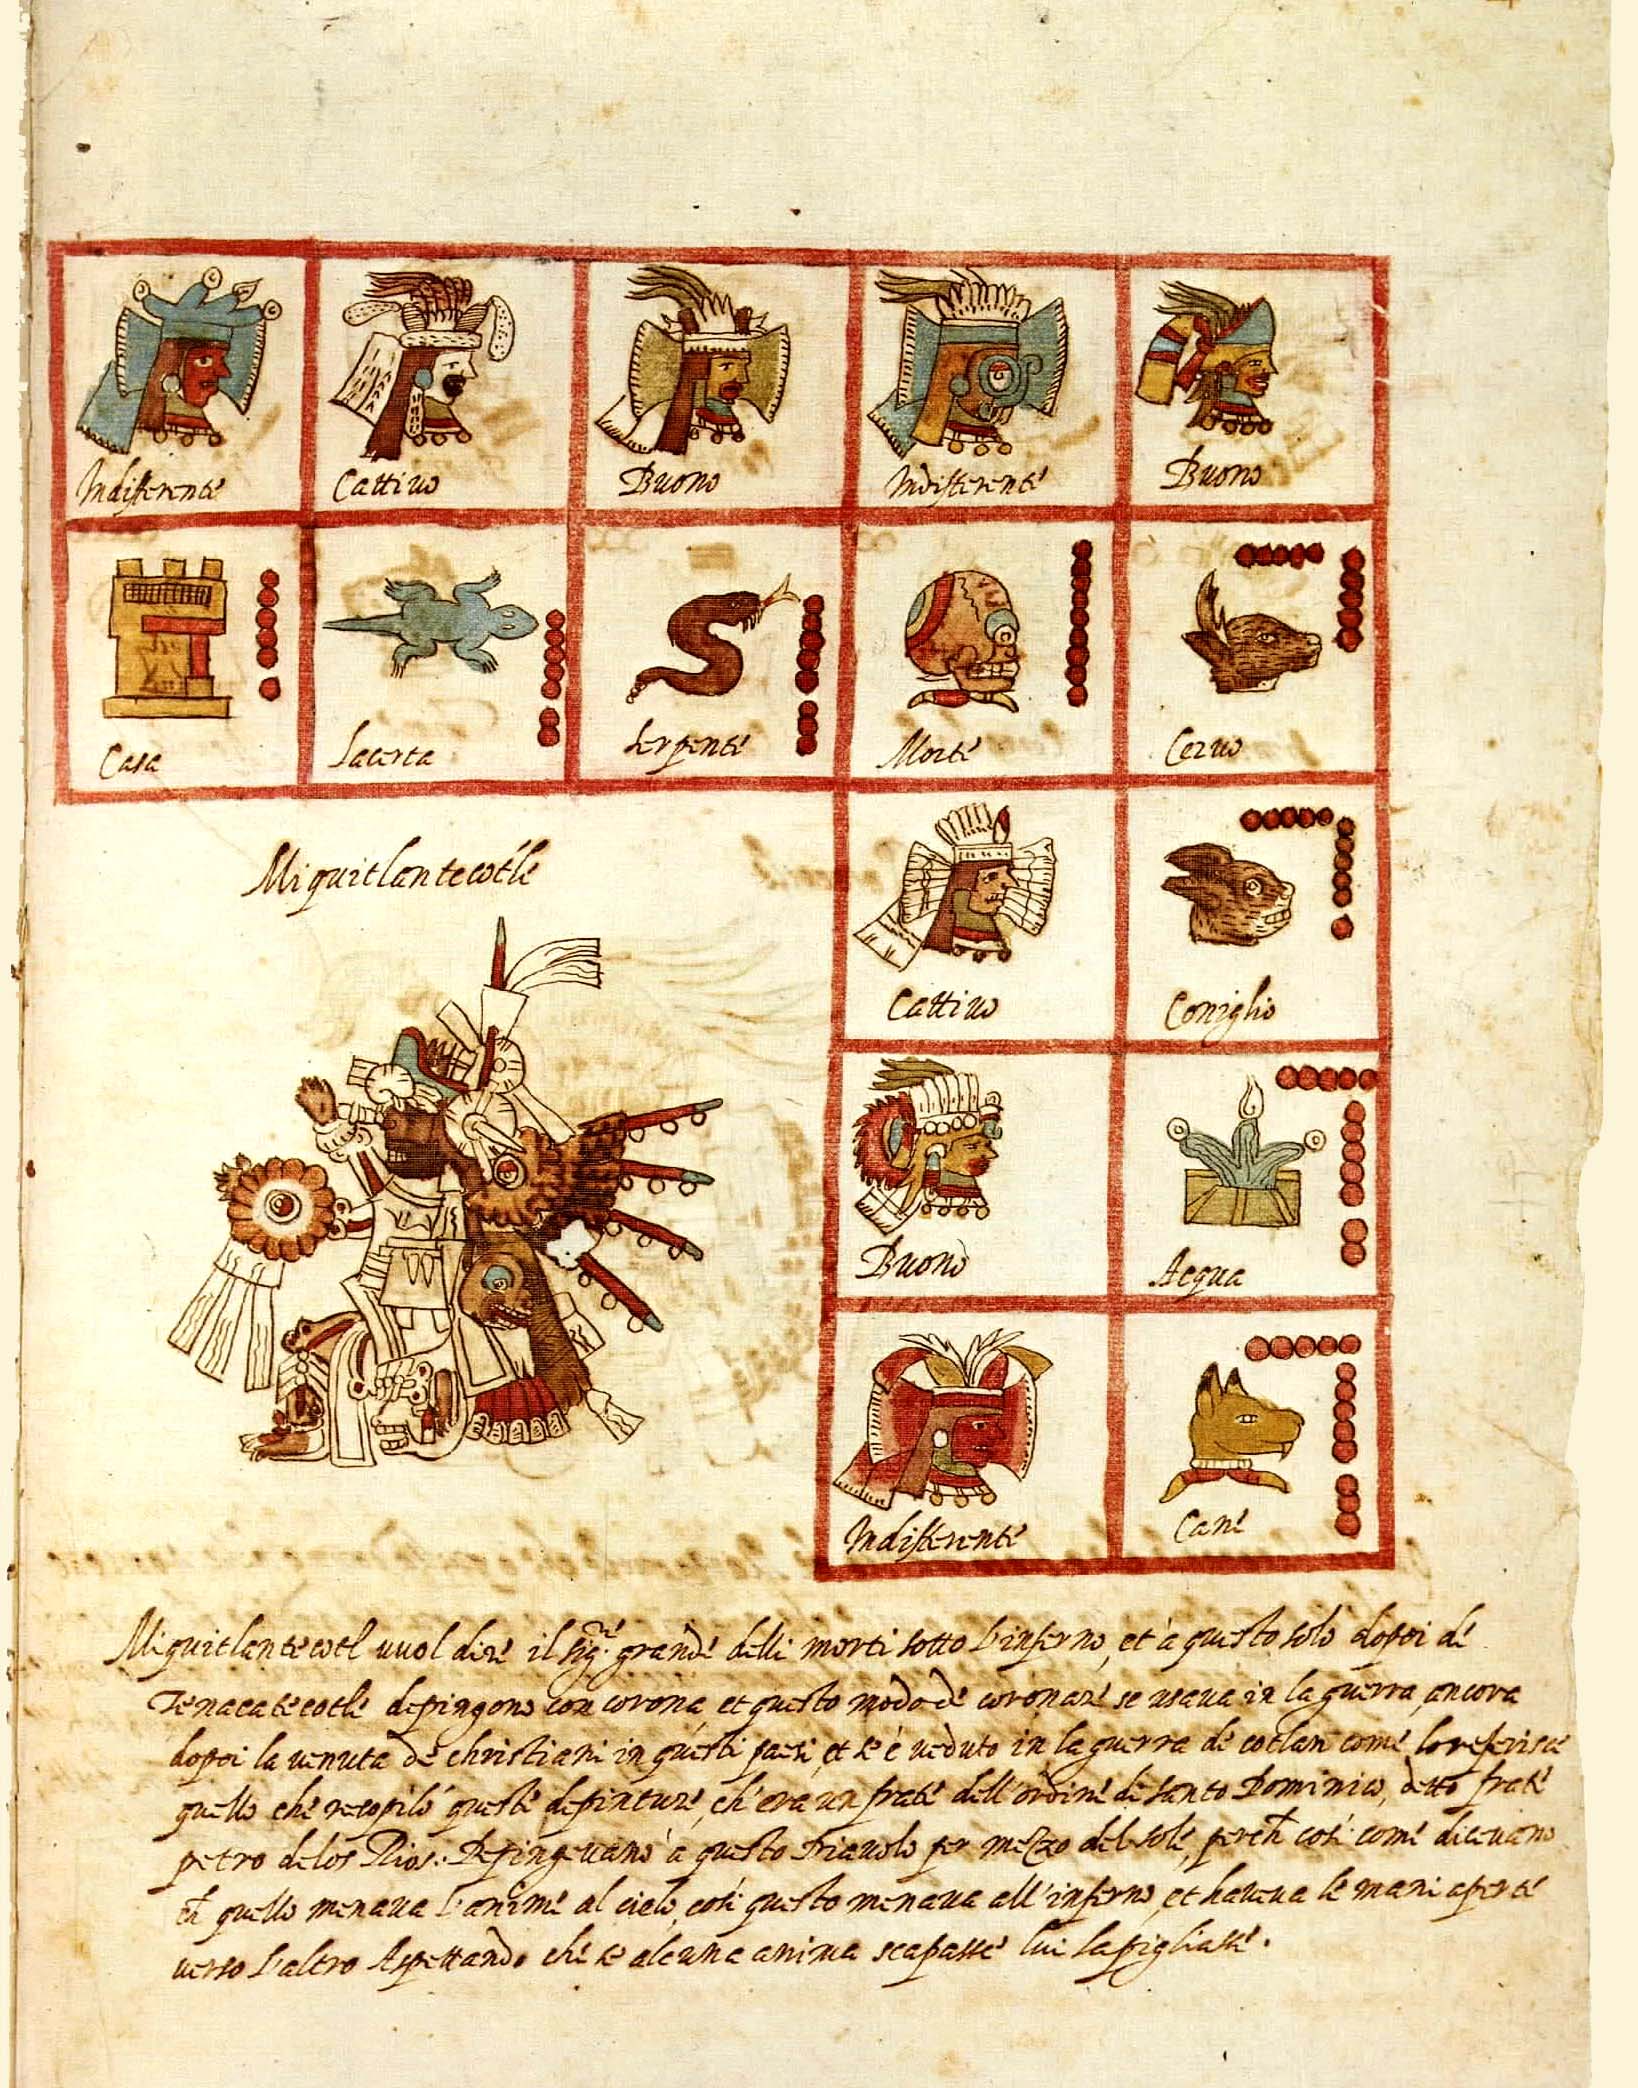 Indifferente Cattiuo Buono Indifferente Buono
Casa Lacerta Serpente Morte Ceruo
Miquitlantecotle
Cattiuo Coniglio
Buono Acqua
Indifferente Cane
Miquitlantecotl vuol dire il sig.re grande delli morti sotto l'inferno, et à questo solo dopoi de
Tenacatecotle depingono con corona, et questo modo de coronare se usaua in la guerra, ancora
dopoi la venuta de christiani in questi paesi, et se è veduto in la guerra de cotlan come lo referisce
quello che recopilò queste depinture, ch'era un frate dell'ordine de Santo Dominico, detto frate
petro delos Rios. Depingeuano à questo Diauolo per mezzo del sole, perch così come diceuano
ch quello menaua l'anime al cielo, così questo menaua all'inferno, et haueua le mani aperte
verso l'altro Aspettando che se alcuna anima scapasse lui la pigliasse.